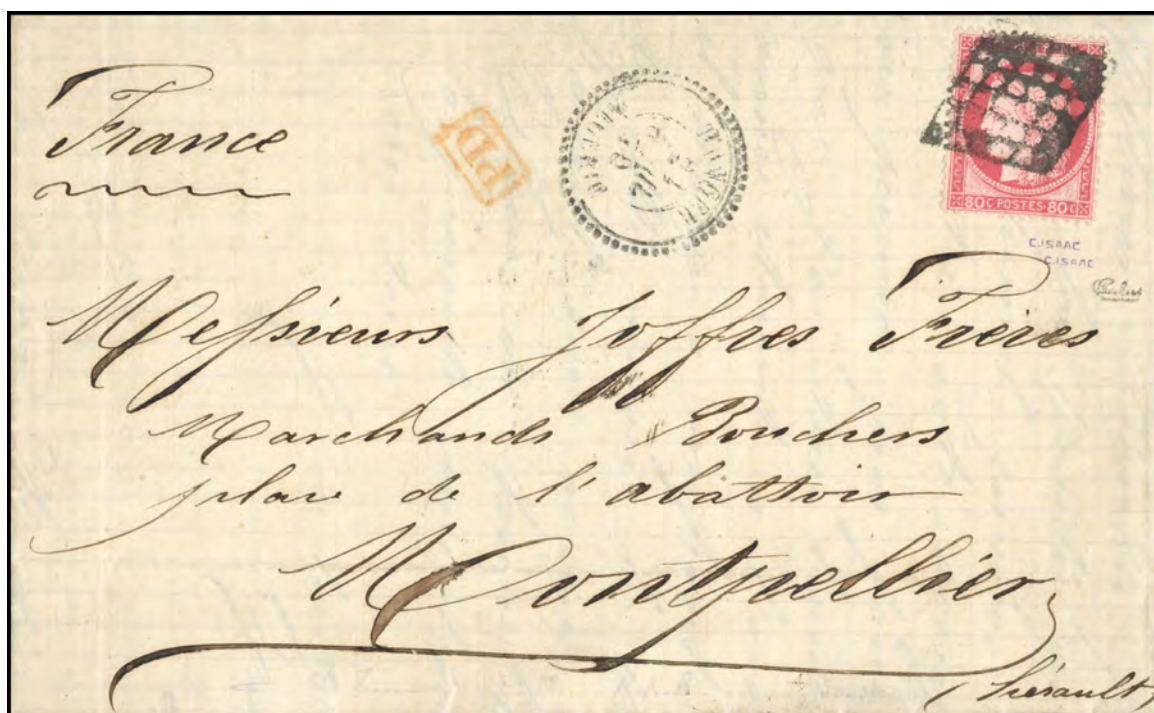 France
PD
TANGER
80C·POSTES·80C
C.ISAAC
C.ISAAC
Messieurs Joffres Frères
Marchands Bouchers
place de l'abattoir
Montpellier
(hérault)